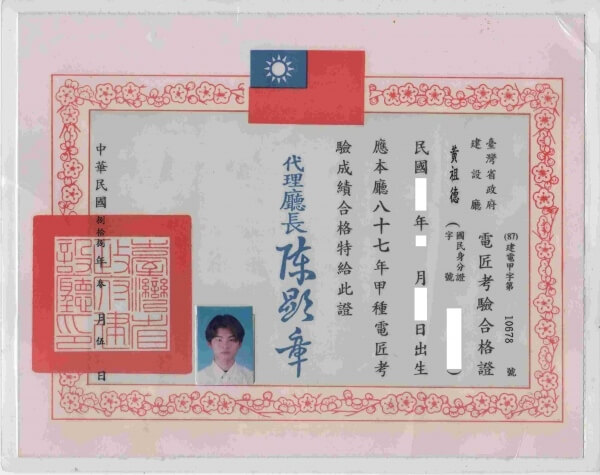 (87)建電甲字第 10678 號
臺灣省政府建設廳
電匠考驗合格證
黃祖德
(國民身分證字號 )
民國 年 月 日出生
應本廳八十七年甲種電匠考
驗成績合格特給此證
代理廳長陳顯章
中華民國捌拾捌年叁月伍日
臺灣省政府建設廳印